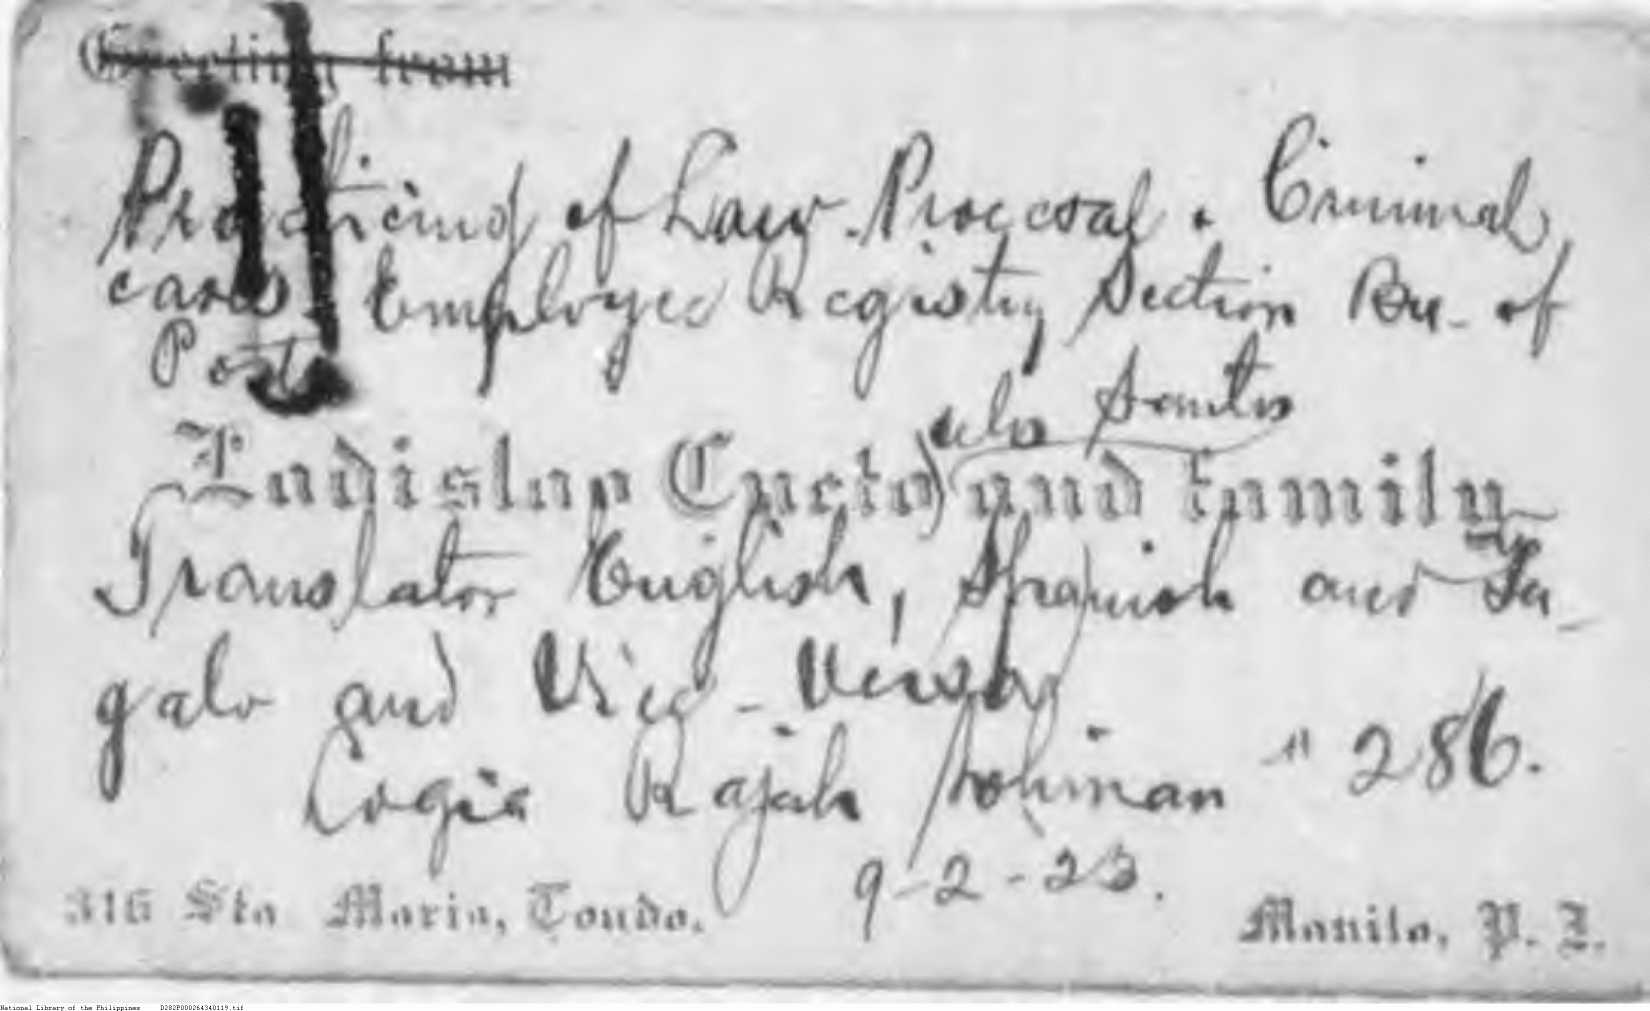 Greeting from
Practicing of Law. Procesal . Criminal,
cases. Employee Registry Section Bu. of
Posts
de los Santos
Ladislao Cucto) and family
Translator English, Spanish and Ta-
galo and Vice-Versa
Logia Rajah Soliman " 286.
9-2-23.
316 Sta Maria, Tondo.
Manila, P. I.
National Library of the Philippines D282P000264340119.tif